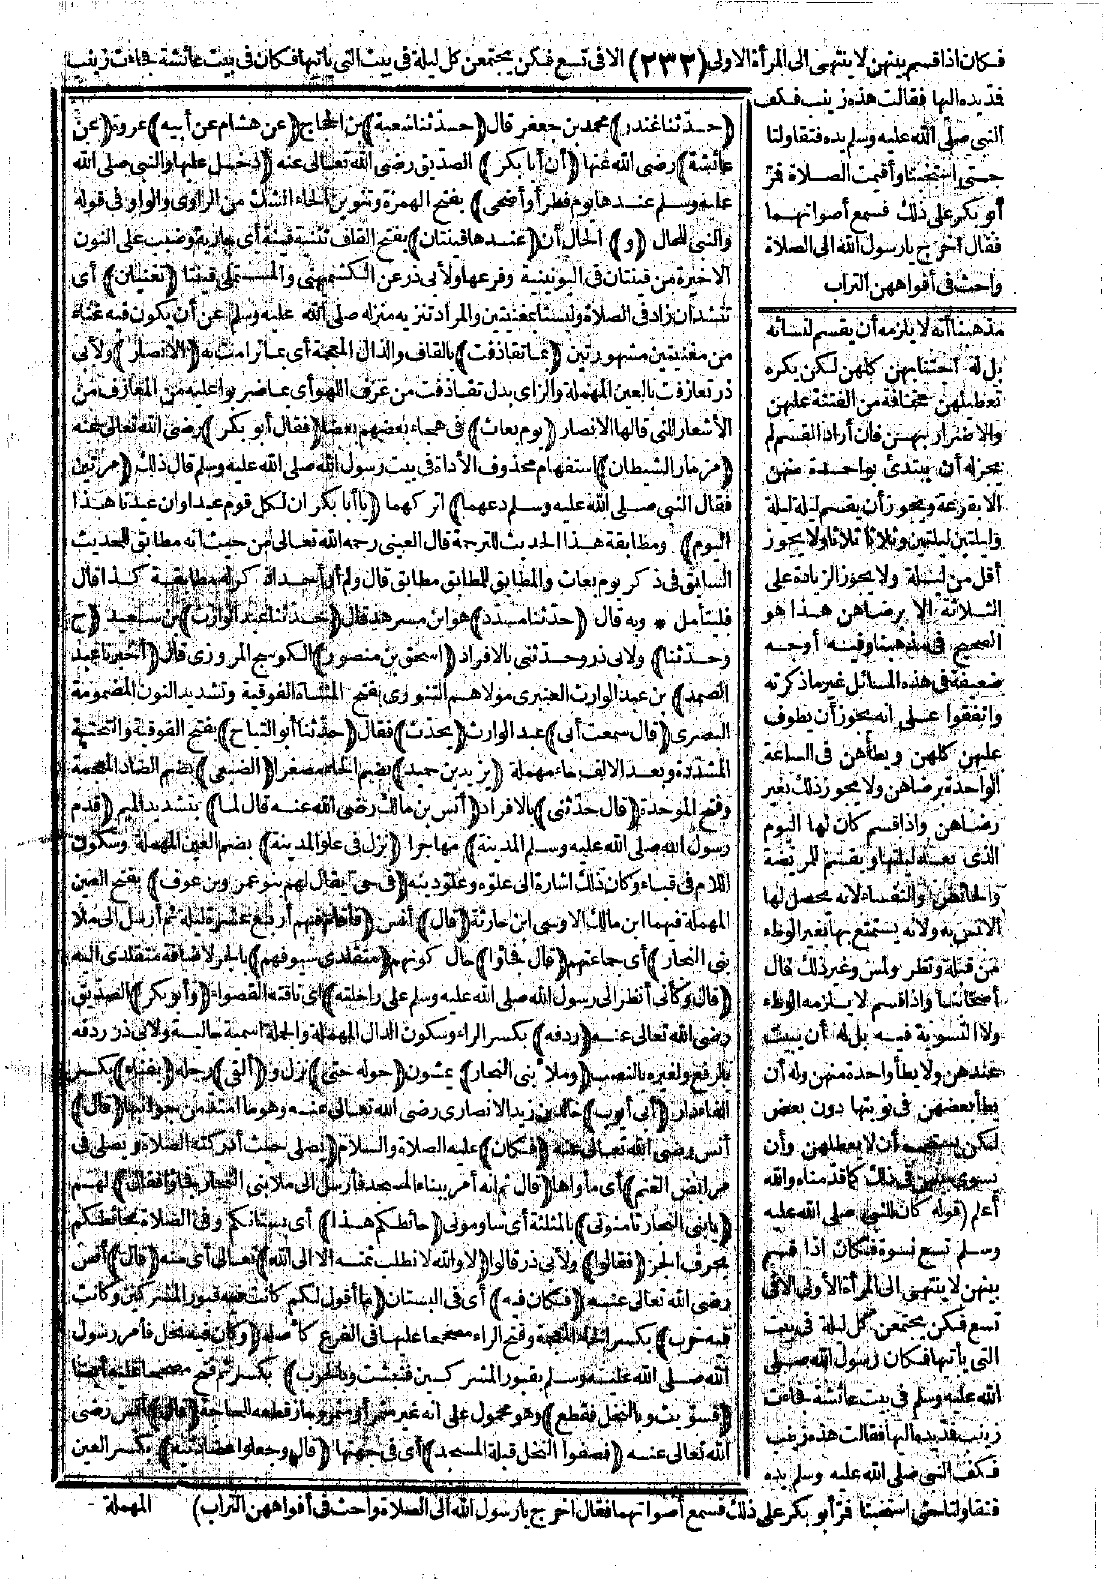 فكان اذا قسم بينهن لا ينتهى الى المرأة الاولى (٢٣٢) الا فى تسع فكن يجتمعن كل ليلة فى بيت التى يأتيها فكان فى بيت عائشة فجاءت زينب
فمد يده اليها فقالت هذه زينب فكف
النبى صلى الله عليه وسلم يده فتقاولتا
حتى استخبتا وأقيمت الصلاة فمر
أبو بكر على ذلك فسمع أصواتهما
فقال اخرج يا رسول الله الى الصلاة
واحث فى أفواههن التراب
مذهبنا أنه لا يلزمه أن يقسم لنسائه
بل له اجتنابهن كلهن لكن يكره
تعطيلهن مخافة من الفتنة عليهن
والاضرار بهن فان أراد القسم لم
يجز له أن يبتدئ بواحدة منهن
الا بقرعة ويجوز أن يقسم ليلة ليلة
وليلتين ليلتين وثلاثا ثلاثا ولا يجوز
أقل من ليلة ولا يجوز الزيادة على
الثلاثة الا برضاهن هذا هو
الصحيح فى مذهبنا وفيه أوجه
ضعيفة فى هذه المسائل غير ما ذكرته
واتفقوا على انه يجوز أن يطوف
عليهن كلهن ويطأهن فى الساعة
الواحدة برضاهن ولا يجوز ذلك بغير
رضاهن واذا قسم كان لها اليوم
الذى بعد ليلتها ويقسم للمريضة
والحائض والنفساء لانه يحصل لها
الانس به ولانه يستمتع بها بغير الوطء
من قبلة ونظر ولمس وغير ذلك قال
أصحابنا واذا قسم لا يلزمه الوطء
ولا التسوية فيه بل له أن يبيت
عندهن ولا يطأ واحدة منهن وله أن
يطأ بعضهن فى نوبتها دون بعض
لكن يستحب أن لا يعطلهن وأن
يسوى بينهن فى ذلك كما قدمناه والله
أعلم (قوله كان للنبى صلى الله عليه
وسلم تسع نسوة فكان اذا قسم
بينهن لا ينتهى الى المرأة الأولى الا فى
تسع فكن يجتمعن كل ليلة فى بيت
التى يأتيها فكان رسول الله صلى
الله عليه وسلم فى بيت عائشة فجاءت
زينب فمد يده اليها فقالت هذه زينب
فكف النبى صلى الله عليه وسلم يده
فتقاولتا حتى استخبتا فمر أبو بكر على ذلك فسمع أصواتهما فقال اخرج يا رسول الله الى الصلاة واحث فى أفواههن التراب)
(حدثنا غندر) محمد بن جعفر قال (حدثنا شعبة) بن الحجاج (عن هشام عن أبيه) عروة (عن
عائشة) رضى الله عنها (أن أبا بكر) الصديق رضى الله تعالى عنه (دخل عليها والنبى صلى الله
عليه وسلم عندها يوم فطر أو أضحى) بفتح الهمزة وتنوين الحاء الشك من الراوى والواو فى قوله
والنبى للحال (و) الحال أن (عندها قينتان) بفتح القاف تثنية قينة أى جارية وضبب على النون
الاخيرة من قينتان فى اليونينية وفرعها ولأبى ذر عن الكشميهنى والمستملى قينتا (تغنيان) أى
تنشدان زاد فى الصلاة وليستا بمغنيتين والمراد تنزيه منزله صلى الله عليه وسلم عن أن يكون فيه غناء
من مغنيتين مشهورتين (بما تقاذفت) بالقاف والذال المعجمة أى بما ترامت به (الانصار) ولأبى
ذر تعازفت بالعين المهملة والزاى بدل تقاذفت من عزف اللهو أى بما ضربوا عليه من المعازف من
الأشعار التى قالها الانصار (يوم بعاث) فى هجاء بعضهم بعضا (فقال أبو بكر) رضى الله تعالى عنه
(مزمار الشيطان) استفهام محذوف الأداة فى بيت رسول الله صلى الله عليه وسلم قال ذلك (مرتين
فقال النبى صلى الله عليه وسلم دعهما) اتركهما (يا أبا بكر ان لكل قوم عيدا وان عيدنا هذا
اليوم) ومطابقة هذا الحديث للترجمة قال العينى رحمه الله تعالى من حيث انه مطابق للحديث
السابق فى ذكر يوم بعاث والمطابق للمطابق مطابق قال ولم أر أحدا ذكر له مطابقة كذا قال
فليتأمل * وبه قال (حدثنا مسدد) هو ابن مسرهد قال (حدثنا عبد الوارث) بن سعيد (ح
وحدثنا) ولابى ذر وحدثنى بالافراد (اسحق بن منصور) الكوسج المروزى قال (أخبرنا عبد
الصمد) بن عبد الوارث العنبرى مولاهم التنورى بفتح المثناة الفوقية وتشديد النون المضمومة
البصرى (قال سمعت أبى) عبد الوارث (يحدث) فقال (حدثنا أبو التياح) بفتح الفوقية والتحتية
المشددة وبعد الالف حاء مهملة (يزيد بن حميد) بضم الحاء مصغرا (الضبعى) بضم الضاد المعجمة
وفتح الموحدة (قال حدثنى) بالافراد (أنس بن مالك رضى الله عنه قال لما) بتشديد الميم (قدم
رسول الله صلى الله عليه وسلم المدينة) مهاجرا (نزل فى علو المدينة) بضم العين المهملة وسكون
اللام فى قباء وكان ذلك اشارة الى علوه وعلو دينه (فى حى يقال لهم بنو عمرو بن عوف) بفتح العين
المهملة فيهما ابن مالك الاوسى ابن حارثة (قال) أنس (فأقام فيهم أربع عشرة ليلة ثم أرسل الى ملا
بنى النجار) أى جماعتهم (قال فجاؤا) حال كونهم (متقلدى سيوفهم) بالجر لاضافة متقلدى اليه
(قال وكأنى أنظر الى رسول الله صلى الله عليه وسلم على راحلته) أى ناقته القصواء (وأبو بكر) الصديق
رضى الله تعالى عنه (ردفه) بكسر الراء وسكون الدال المهملة والجملة اسمية حالية ولابى ذر ردفه
بالرفع ولغيره بالنصب (وملا بنى النجار) يمشون (حوله حتى) نزل و (ألقى) رحله (بفناء) بكسر
الفاء دار (أبى أيوب) خالد بن زيد الانصارى رضى الله تعالى عنه وهو ما امتد من جوانبها (قال)
أنس رضى الله تعالى عنه (فكان) عليه الصلاة والسلام (يصلى حيث أدركته الصلاة ويصلى فى
مرابض الغنم) أى مأواها (قال ثم انه أمر ببناء المسجد فأرسل الى ملا بنى النجار فجاؤا فقال) لهم
(يا بنى النجار ثامنونى) بالمثلثة أى ساومونى (حائطكم هذا) أى بستانكم وفى الصلاة بحائطكم
بحرف الجر (فقالوا) ولأبى ذر قالوا (لا والله لا نطلب ثمنه الا الى الله) تعالى أى منه (قال) أنس
رضى الله تعالى عنه (فكان فيه) أى فى البستان (ما أقول لكم كانت فيه قبور المشركين وكانت
فيه خرب) بكسر الخاء المعجمة وفتح الراء مصححا عليها فى الفرع كأصله (وكان فيه نخل فأمر رسول
الله صلى الله عليه وسلم بقبور المشركين فنبشت وبالخرب) بكسر ثم فتح مصححا عليه أيضا
(فسويت وبالنخل فقطع) وهو محمول على انه غير مثمر أو مثمر وجاز قطعه للحاجة (قال) أنس رضى
الله تعالى عنه (فصفوا النخل قبلة المسجد) أى فى جهتها (قال وجعلوا عضادتيه) بكسر العين
المهملة